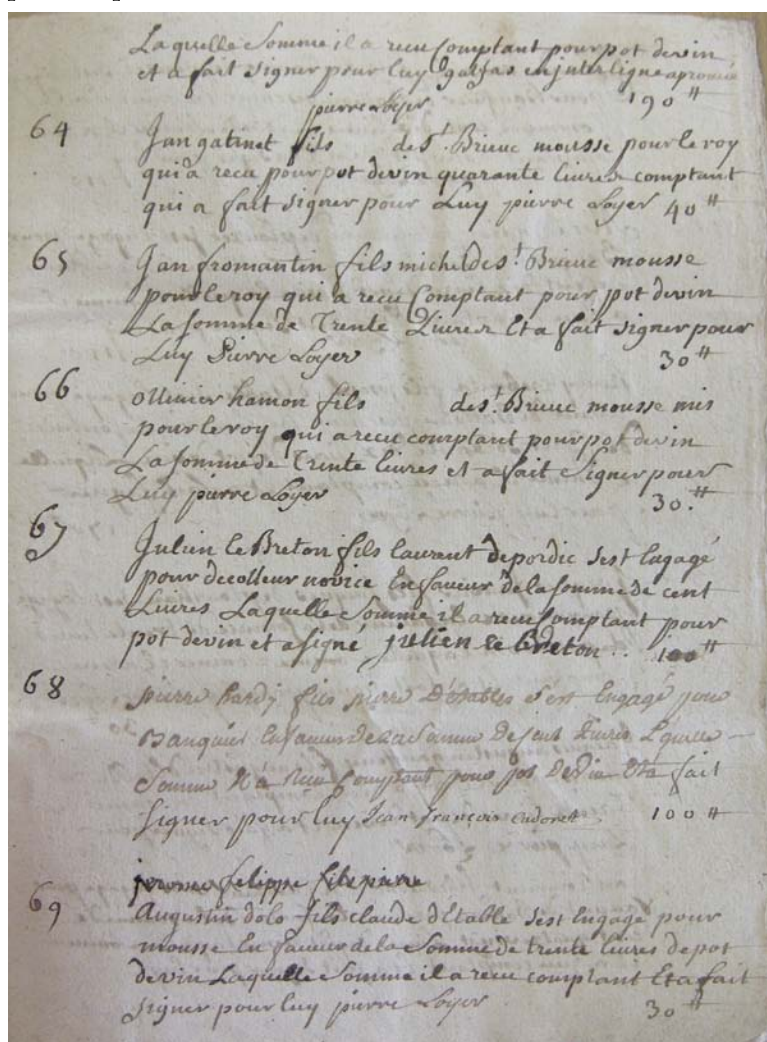 Laquelle Somme il a receu Comptant pour pot de vin
et a fait signer pour luy en interligne aprouvé
pierre Loyer 190 ᵗᵗ
64 Jan gatinet fils de Sᵗ. Brieuc mousse pour le roy
qui a receu pour pot de vin quarante livres comptant
qui a fait signer pour Luy pierre Loyer 40 ᵗᵗ
65 Jan fromantin fils michel de sᵗ Brieuc mousse
pour le roy qui a receu Comptant pour pot de vin
La somme de Trente Livres Et a fait signer pour
Luy Pierre Loyer 30 ᵗᵗ
66 Ollivier hamon fils de sᵗ. Brieuc mousse mis
pour le roy qui a receu comptant pour pot de vin
La somme de Trente livres et a fait Signer pour
Luy pierre Loyer 30. ᵗᵗ
67 Julien le Breton fils laurant de pordic sest Engagé
pour decolleur novice En faveur de la somme de cent
Livres Laquelle Somme il a receu Comptant pour
pot de vin et a signé julien le Breton .. 100 ᵗᵗ
68 pierre hardy fils pierre D'étables s'est Engagé pour
Banquier En faveur De La Somme De sent Livres Lquelle
Somme il a Receu Comptant pour pot De Vin Et a fait
Signer pour luy Jean François cadoret 100 ᵗᵗ
jerome felippe fils pierre
69 Augustin dolo fils claude d'Etable sest Engagé pour
mousse En faveur de la Somme de trente livres de pot
de vin Laquelle Somme il a receu comptant Et a fait
signer pour luy pierre Loyer 30 ᵗᵗ